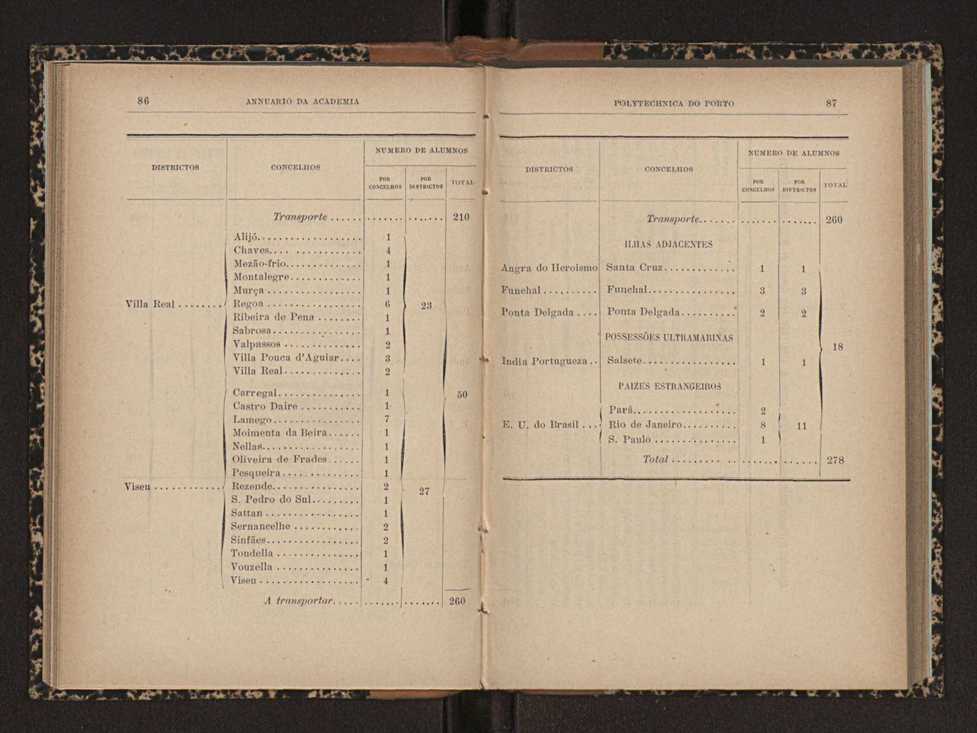 86 ANNUARIO DA ACADEMIA
DISTRICTOS CONCELHOS NUMERO DE ALUMNOS
POR CONCELHOS POR DISTRICTOS TOTAL
Transporte ...... ....... ....... 210
Alijó.................. 1
Chaves.... ............. 4
Mezão-frio.............. 1
Montalegre............. 1
Murça ................. 1
Villa Real ........ Regoa ................. 6 23
Ribeira de Pena ........ 1
Sabrosa................ 1
Valpassos .............. 2
Villa Pouca d'Aguiar.... 3
Villa Real.............. 2
50
Carregal............... 1
Castro Daire ........... 1
Lamego................ 7
Moimenta da Beira...... 1
Nellas.................. 1
Oliveira de Frades ...... 1
Pesqueira.............. 1
Viseu ............ Rezende................ 2 27
S. Pedro do Sul......... 1
Sattan ................. 1
Sernancelhe ............ 2
Sinfães................. 2
Tondella ............... 1
Vouzella ............... 1
Viseu .................. 4
A transportar..... ....... ....... 260
POLYTECHNICA DO PORTO 87
DISTRICTOS CONCELHOS NUMERO DE ALUMNOS
POR CONCELHOS POR DISTRICTOS TOTAL
Transporte....... ....... ....... 260
ILHAS ADJACENTES
Angra do Heroismo Santa Cruz............. 1 1
Funchal .......... Funchal................ 3 3
Ponta Delgada .... Ponta Delgada.......... 2 2
POSSESSÕES ULTRAMARINAS
18
India Portugueza .. Salsete................. 1 1
PAIZES ESTRANGEIROS
Pará................... 2
E. U. do Brasil ... Rio de Janeiro.......... 8 11
S. Paulo ............... 1
Total .......... ....... ....... 278